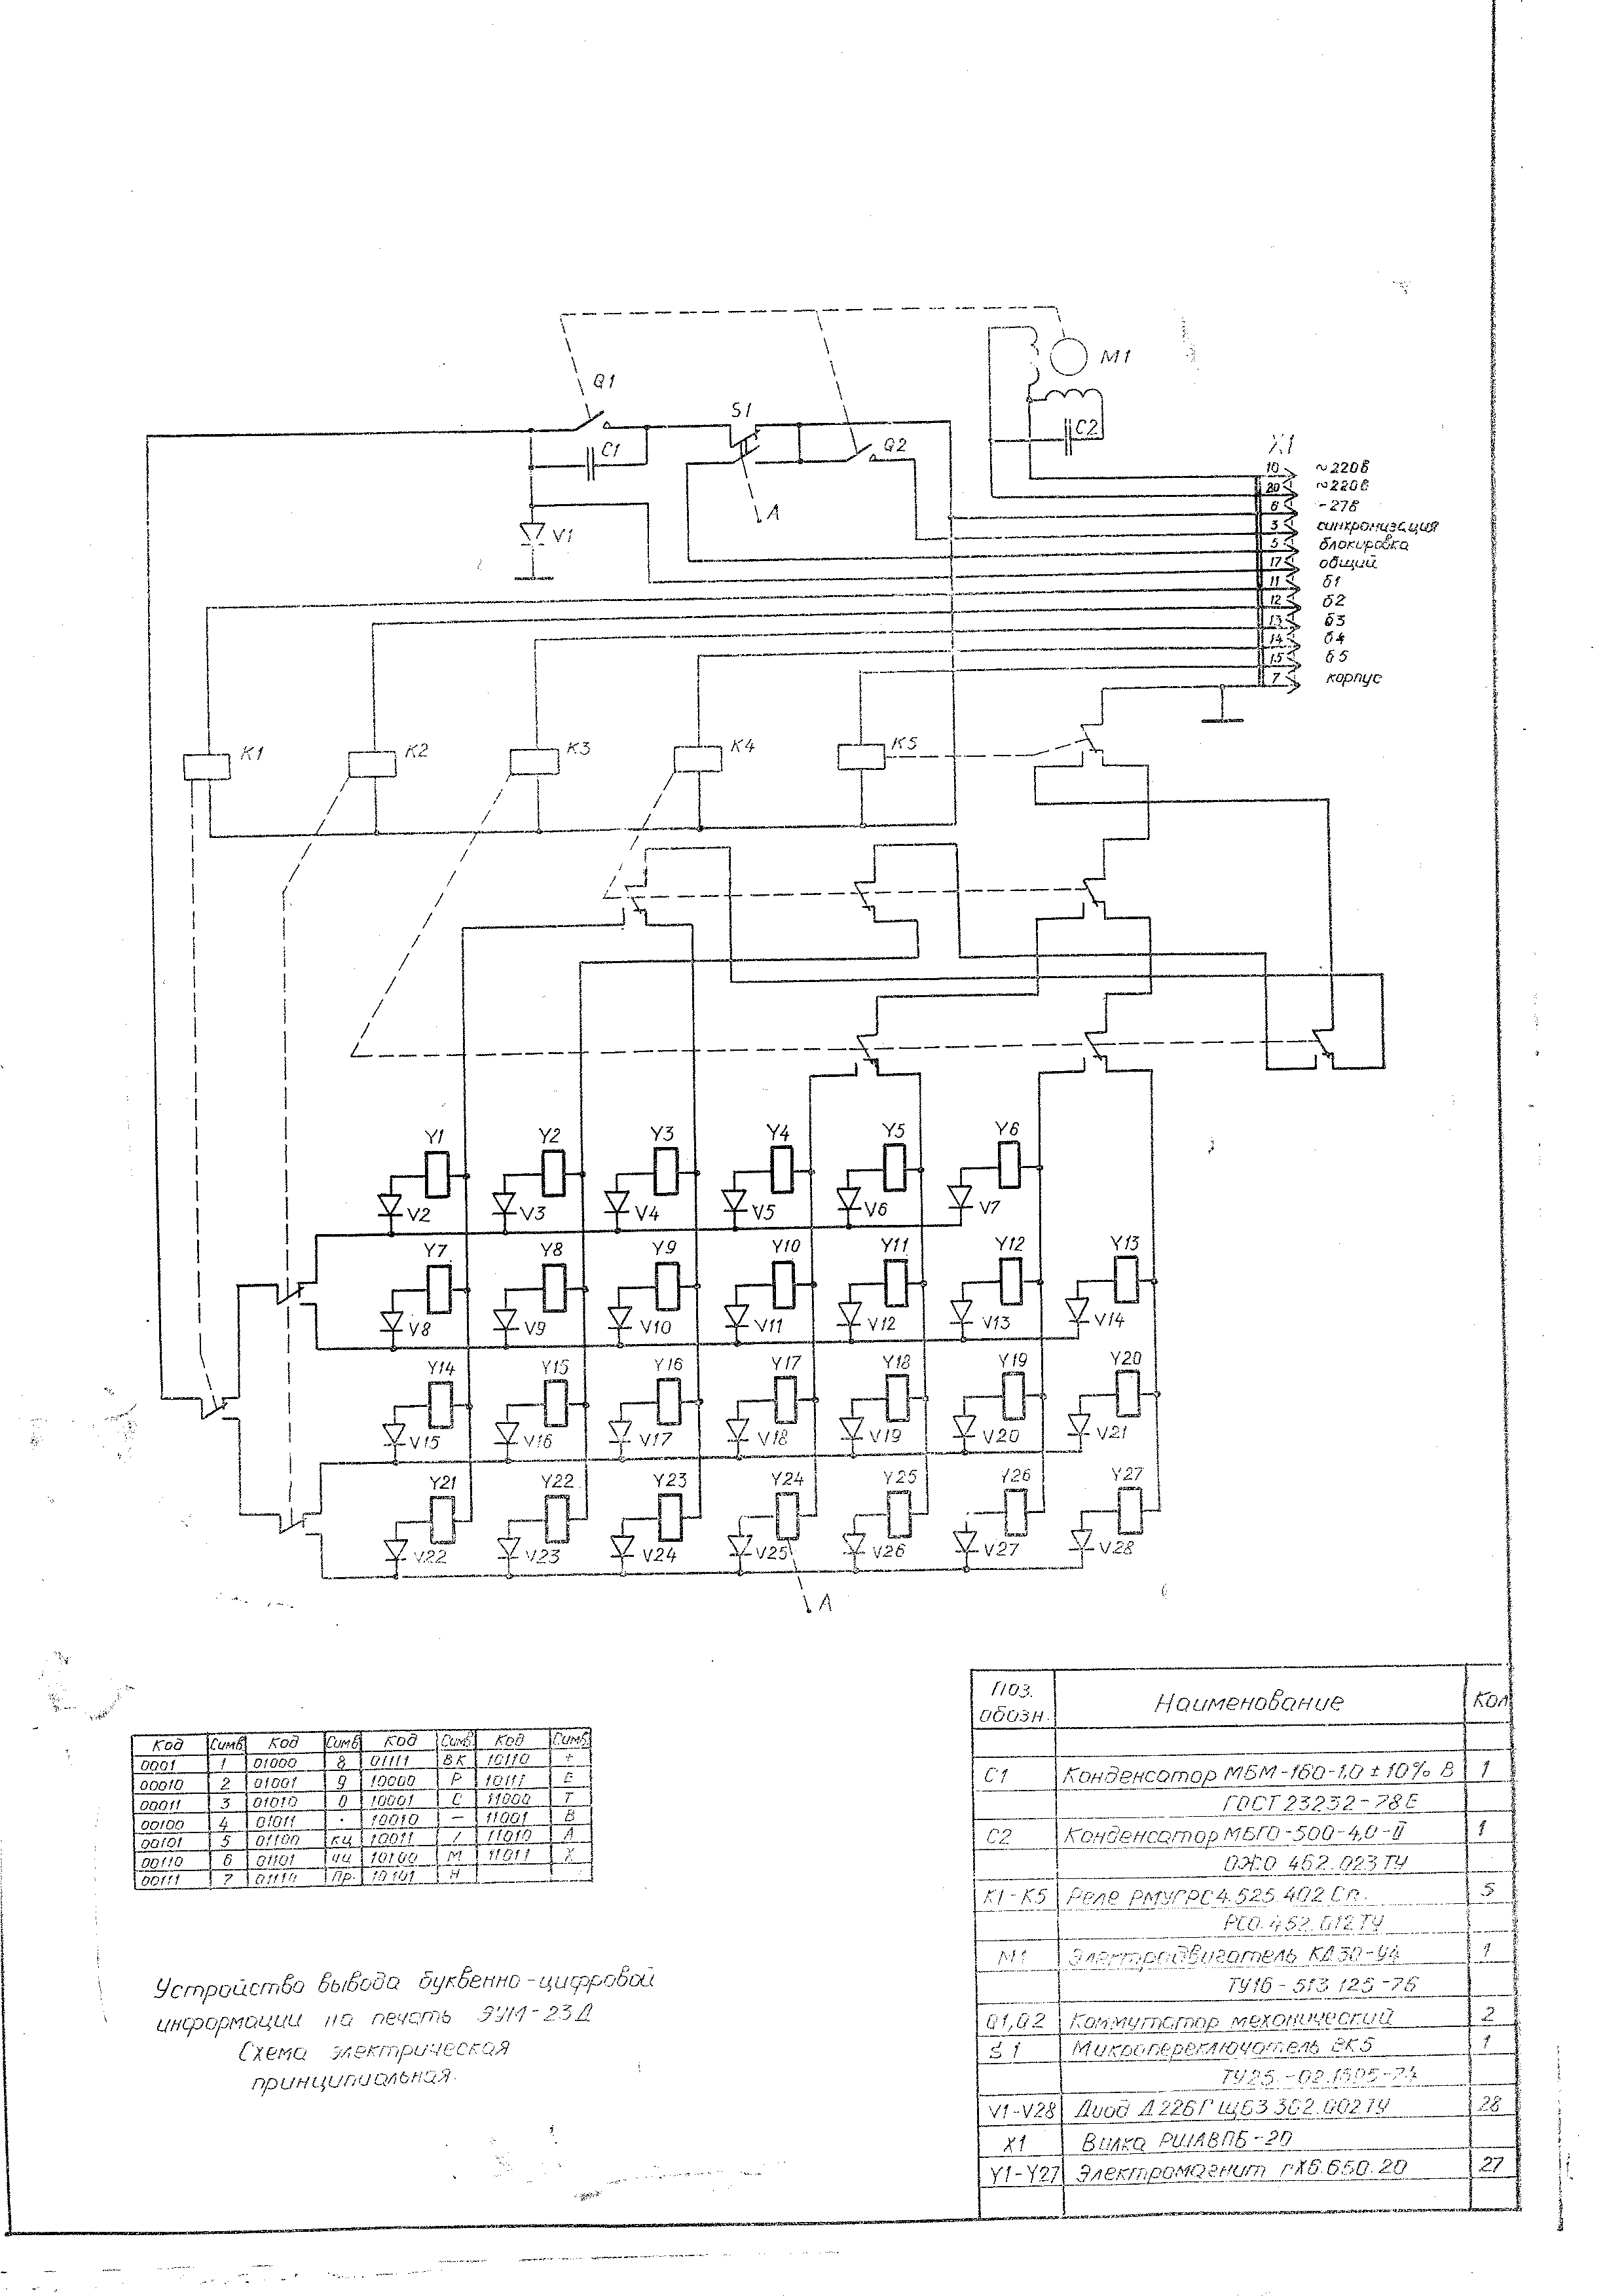 M1
G1
S1
C1
G2
C2
V1
A
X1
10 ~220В
20 ~220В
6 -27В
3 синхронизация
5 блокировка
17 общий
11 Б1
12 Б2
13 Б3
14 Б4
15 Б5
7 корпус
K1 K2 K3 K4 K5
Y1 Y2 Y3 Y4 Y5 Y6
V2 V3 V4 V5 V6 V7
Y7 Y8 Y9 Y10 Y11 Y12 Y13
V8 V9 V10 V11 V12 V13 V14
Y14 Y15 Y16 Y17 Y18 Y19 Y20
V15 V16 V17 V18 V19 V20 V21
Y21 Y22 Y23 Y24 Y25 Y26 Y27
V22 V23 V24 V25 V26 V27 V28
A
Код Симв Код Симв Код Симв Код Симв
0001 1 01000 8 01111 ВК 10110 +
00010 2 01001 9 10000 Р 10111 Е
00011 3 01010 0 10001 С 11000 Т
00100 4 01011 . 10010 — 11001 В
00101 5 01100 10011 / 11010 А
00110 6 01101 10100 М 11011
00111 7 01110 Пр. 10101
Устройство вывода буквенно-цифровой
информации на печать ЭУМ-23Д
Схема электрическая
принципиальная.
Поз. обозн. Наименование Кол
C1 Конденсатор МБМ-160-1,0±10% В 1
ГОСТ 23232-78Е
C2 Конденсатор МБГО-500-4,0-II 1
ОЖО 462.023ТУ
K1-K5 Реле РМУГ РС4.525.402 Сп. 5
РСО.452.012ТУ
M1 Электродвигатель КД30-У4 1
ТУ16-513.125-76
G1,G2 Коммутатор механический 2
S1 Микропереключатель 1
V1-V28 Диод Д226Г ЩБ3.362.002ТУ 28
X1 Вилка
Y1-Y27 Электромагнит 27